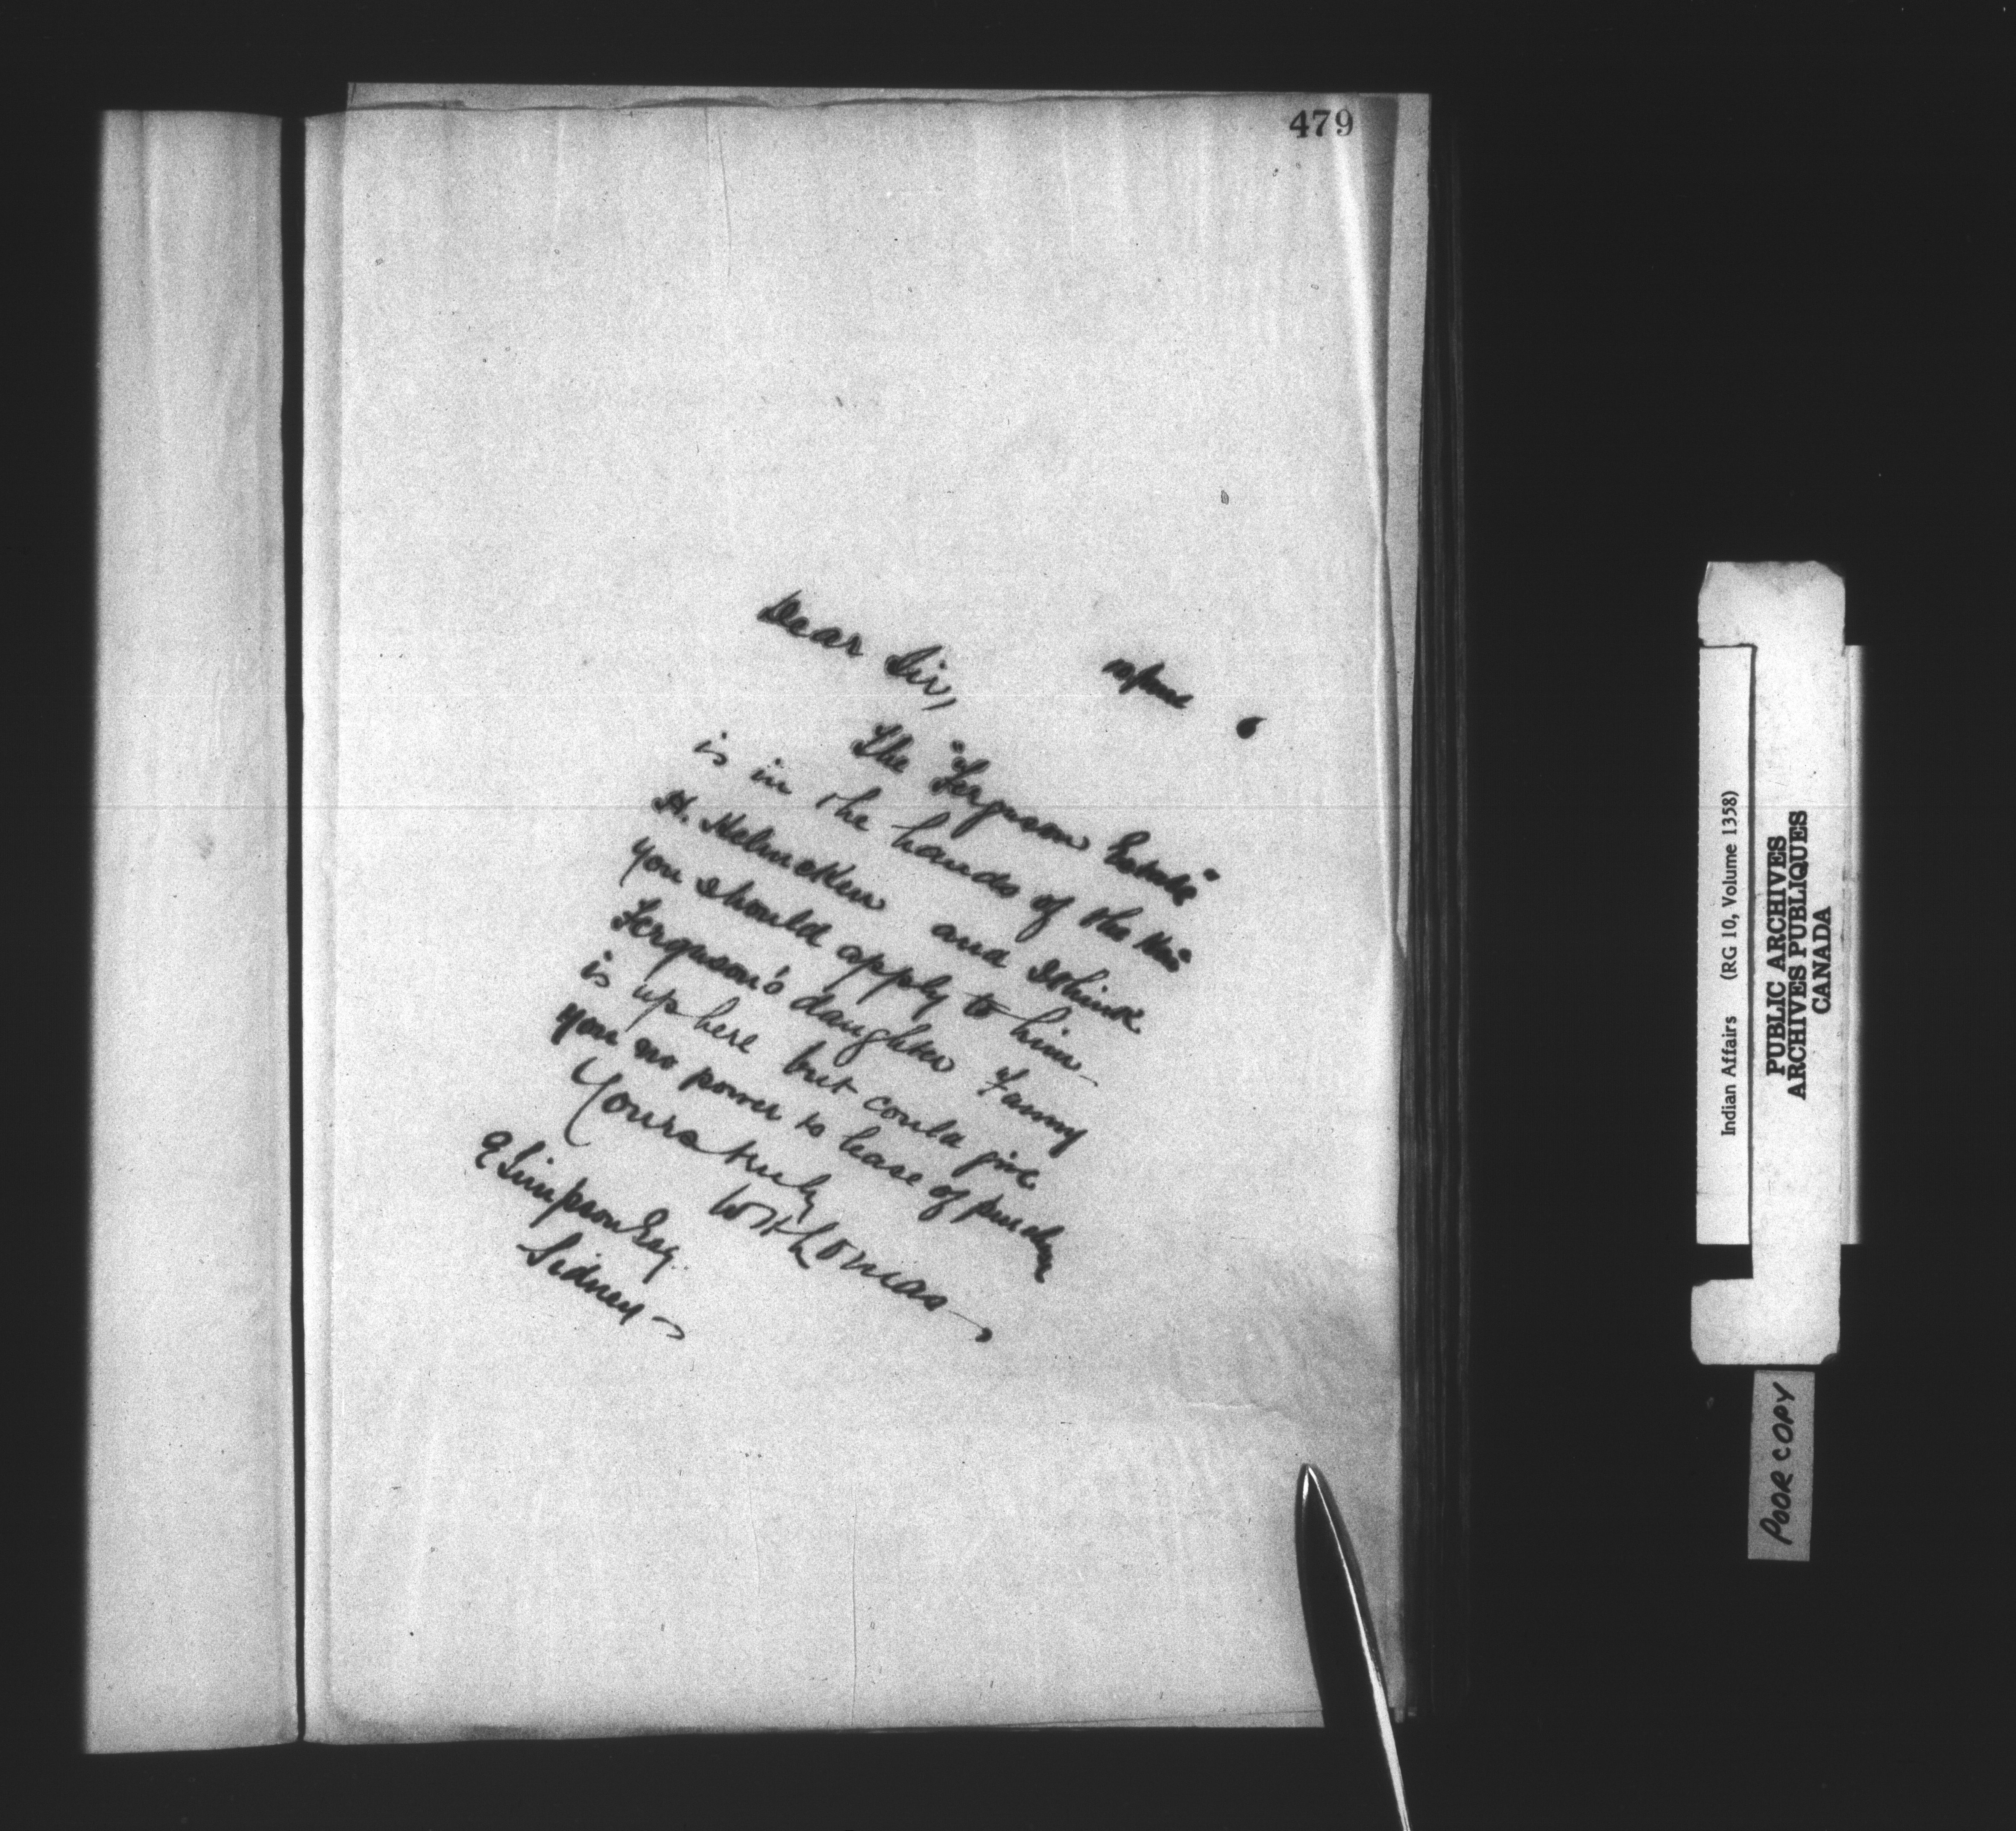 479
Dear Sir,
The "Ferguson Estate"
is in the hands of the Hon
H. Helmcken and I think
you should apply to him
Ferguson's daughter Fanny
is up here but could give
you no power to lease or purchase
Yours truly
W H Lomas
E Simpson Esq.
Sidney
Indian Affairs (RG 10, Volume 1358)
PUBLIC ARCHIVES
ARCHIVES PUBLIQUES
CANADA
POOR COPY